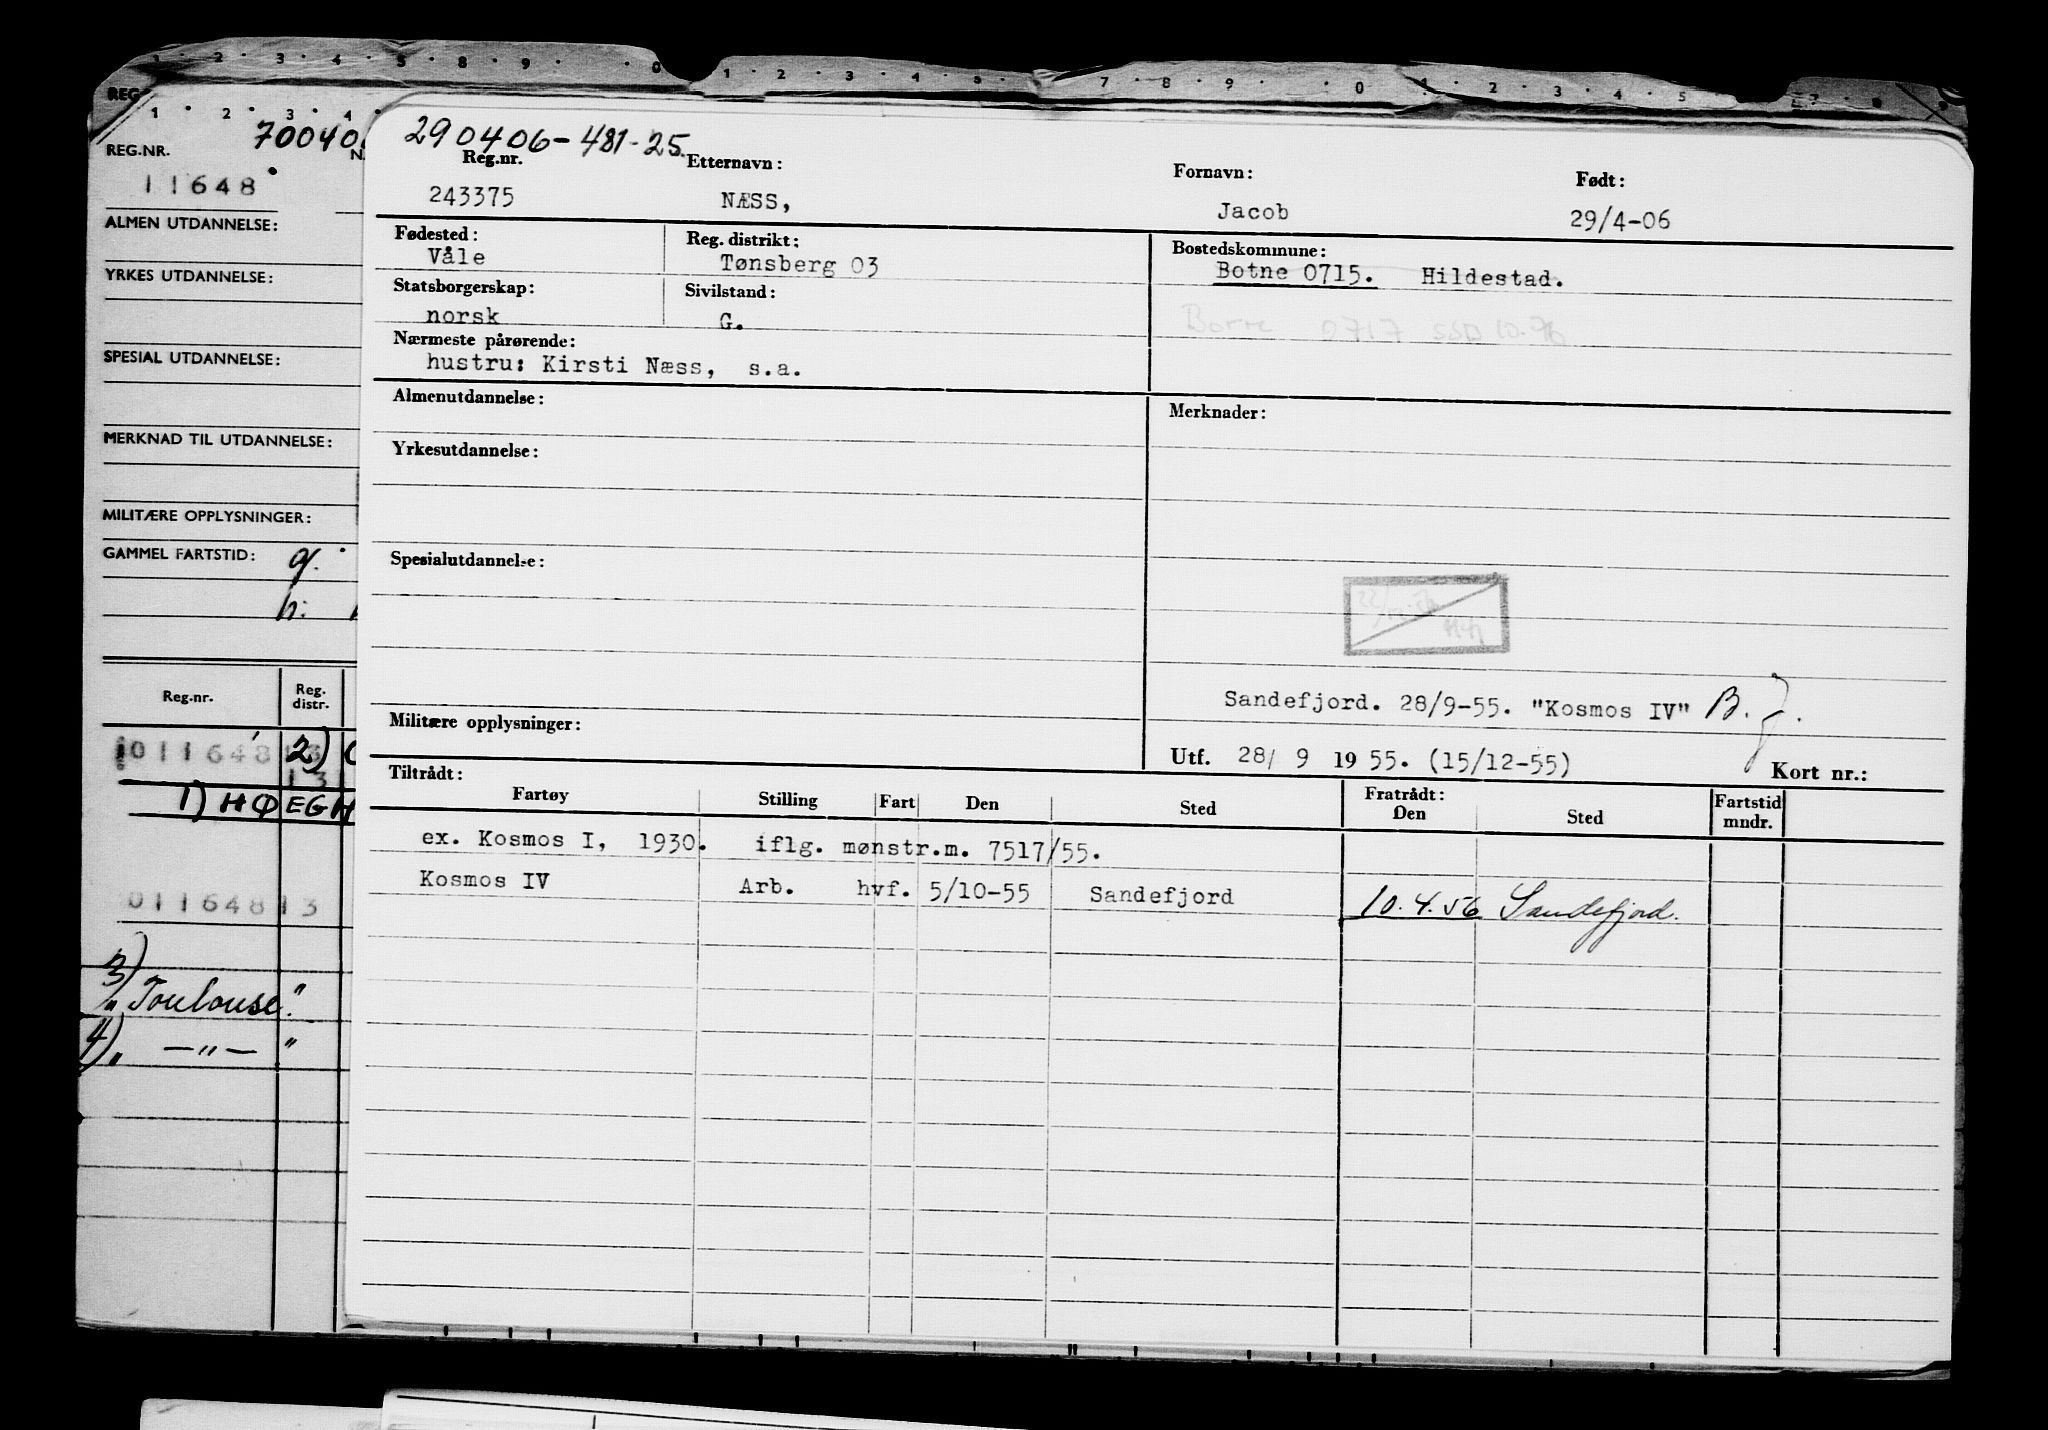 1 2 3 4 5 8 9 0 1 2 3 4 5 7 8 9 0 1 2 3 4 5 7 8 9
REG.
1 2 3 4
REG.NR. 70040
11648
ALMEN UTDANNELSE:
YRKES UTDANNELSE:
SPESIAL UTDANNELSE:
MERKNAD TIL UTDANNELSE:
MILITÆRE OPPLYSNINGER:
GAMMEL FARTSTID: g.
h.
Reg.nr. Reg. distr.
01164813 2)
13
1) HØEGH
01164813
3)
"Toulouse"
4) " — " — "
290406-481-25
Reg.nr. Etternavn: Fornavn: Født:
243375 NÆSS, Jacob 29/4-06
Fødested: Reg. distrikt: Bostedskommune:
Våle Tønsberg 03 Botne 0715. Hildestad.
Statsborgerskap: Sivilstand:
norsk G. Borre 0717 SSD 10.76
Nærmeste pårørende:
hustru: Kirsti Næss, s.a.
Almenutdannelse: Merknader:
Yrkesutdannelse:
Spesialutdannelse:
Sandefjord. 28/9-55. "Kosmos IV" B.J.
Militære opplysninger:
Utf. 28/ 9 1955. (15/12-55) Kort nr.:
Tiltrådt: Fratrådt:
Fartøy Stilling Fart Den Sted Den Sted Fartstid mndr.
ex. Kosmos I, 1930. iflg. mønstr.m. 7517/55.
Kosmos IV Arb. hvf. 5/10-55 Sandefjord 10.4.56 Sandefjord.